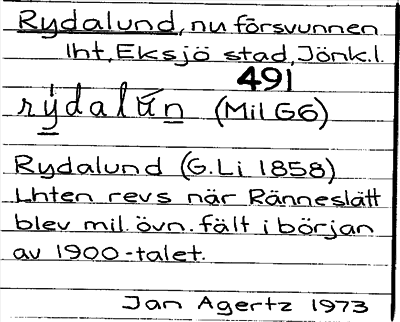 Rydalund, nu försvunnen
lht, Eksjö stad, Jönk.l.
491
rýdalún (Mil G6)
Rydalund (G.Li 1858)
Lhten revs när Ränneslätt
blev mil. övn. fält i början
av 1900-talet.
Jan Agertz 1973